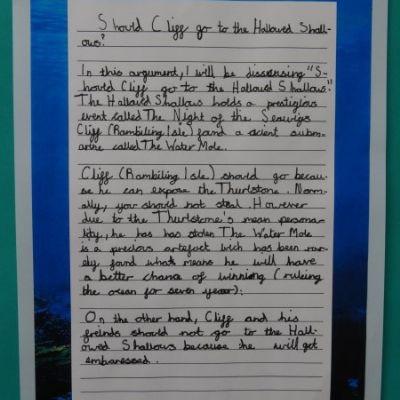 Should Cliff go to the Hallowed Shall-
ows?
In this argument, I will be disscusing "S-
hould Cliff go to the Hallowed Shallows".
The Hallowed Shallows holds a prestigious
event called The Night of the Seawigs
Cliff (Rambiling Isle) found a acient subm-
arine called The Water Mole.
Cliff (Rambiling Isle) should go becau-
se he can expose the Thurlstone. Norm-
ally, you should not steal. However
due to the Thurlstone's mean persona-
lity, he has has stolen The Water Mole
is a precious artefact wich has been rar-
ely found what means he will have
a better chance of winning (ruleing
the ocean for seven year):
On the other hand, Cliff and his
freinds should not go to the Hall-
owed Shallows because he will get
embaressed.